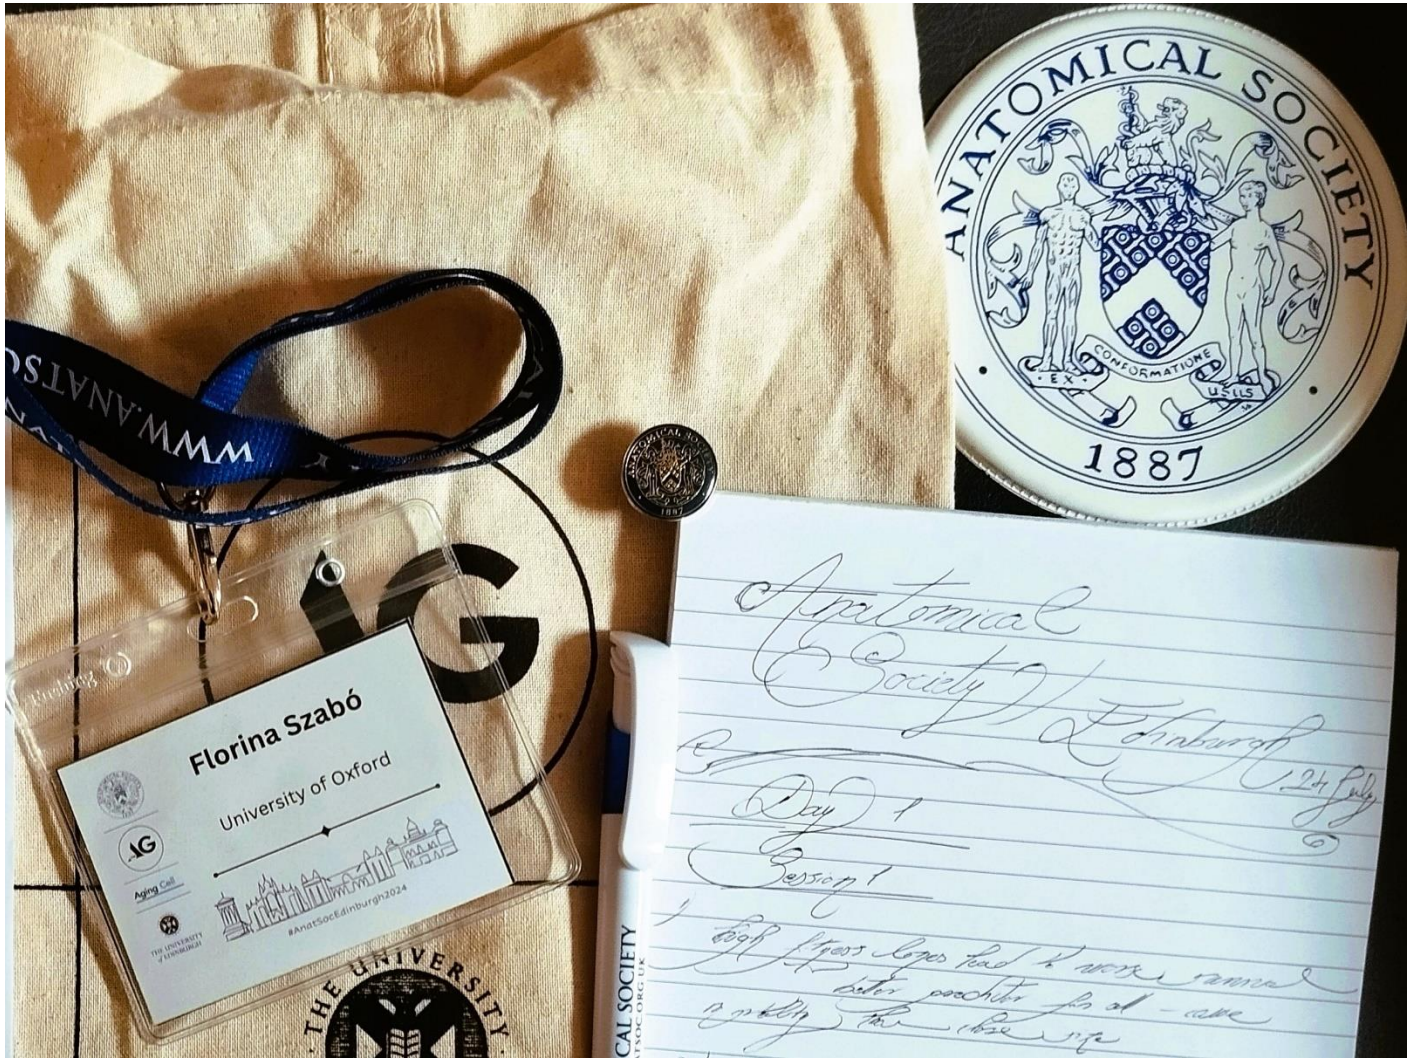 ANATOMICAL SOCIETY
EX CONFORMATIONE USUS
1887
WWW.ANATSO
ANATOMICAL SOCIETY
1887
AG
Florina Szabó
University of Oxford
AG
Aging Cell
THE UNIVERSITY
of EDINBURGH
#AnatSocEdinburgh2024
THE UNIVERSITY
CAL SOCIETY
ATSOC.ORG.UK
Anatomical
Society / Edinburgh
24 July
Day 1
Session 1
high
better for all - cause